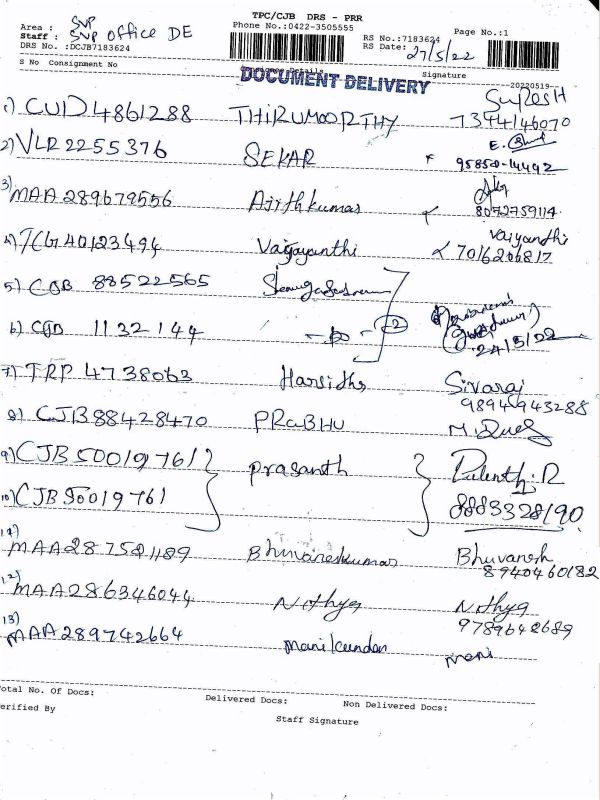 TPC/CJB DRS - PRR
Area : SVP
Phone No.:0422-3505555
Page No.:1
Staff : SVP Office DE
RS No.:7183624
DRS No. :DCJB7183624
RS Date: 27/5/22
S No Consignment No
Signature
20220519
DOCUMENT DELIVERY
1) CUD4861288 THIRUMOORTHY SURESH
7344146070
2) VLR2255376 SEKAR E.
95850-14492
3) MAA289679556 Ajithkumar
8072759114
4) TCG40123494 Vaijayanthi Vaiyanthi
7016206817
5) CJB 88522565
6) CJB 1132144
24/5/22
7) TRP 4738063 Harsidhs Sivaraj
9894943288
8) CJB88428470 PRABHU
9) CJB50019761 Prasanth
10) CJB50019761 8883328190
11) MAA287581189 Bhuvaneskumar Bhuvanesh
8940460182
12) MAA286346044 Nithya Nithya
9789642689
13) MAA289742664 Manikundan Mani
Total No. Of Docs:
Delivered Docs: Non Delivered Docs:
erified By
Staff Signature